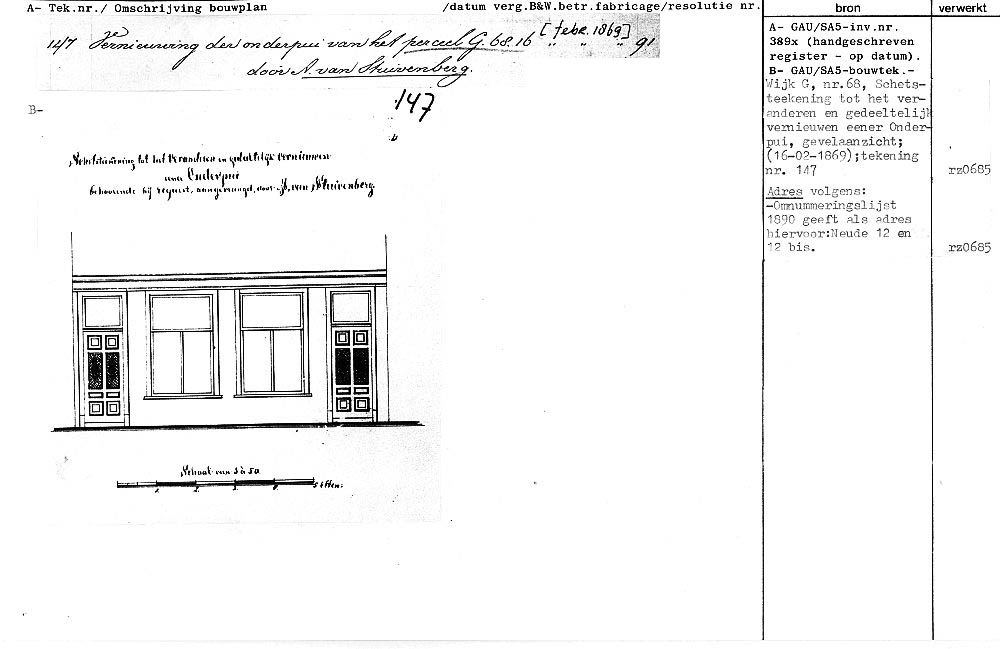 A- Tek.nr./ Omschrijving bouwplan /datum verg.B&W.betr.fabricage/resolutie nr.
bron
verwerkt
147 Vernieuwing der onderpui van het perceel G. 68. 16 [febr. 1869] 91
" " "
door A. van Stuivenberg.
B-
147
Schetsteekening tot het veranderen en gedeeltelijk vernieuwen
eener Onderpui
behoorende bij request, aangevraagd, door A. van Stuivenberg.
Schaal van 1 à 50
1. 2. 3. 4. 5 Ellen.
A- GAU/SA5-inv.nr.
389x (handgeschreven
register - op datum).
B- GAU/SA5-bouwtek.-
Wijk G, nr.68, Schets-
teekening tot het ver-
anderen en gedeeltelijk
vernieuwen eener Onder-
pui, gevelaanzicht;
(16-02-1869);tekening
nr. 147
rz0685
Adres volgens:
-Omnummeringslijst
1890 geeft als adres
hiervoor:Neude 12 en
12 bis.
rz0685